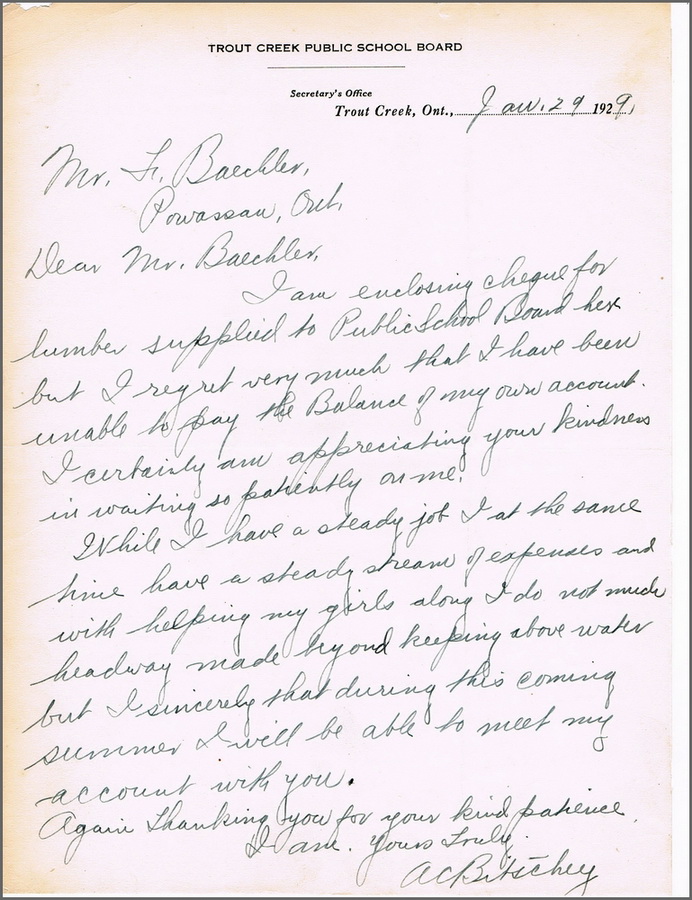 TROUT CREEK PUBLIC SCHOOL BOARD
Secretary's Office
Trout Creek, Ont., Jan. 29 1929,
Mr. F. Baechler,
Powassan, Ont.
Dear Mr. Baechler,
I am enclosing cheque for
lumber supplied to Public School Board her
but I regret very much that I have been
unable to pay the Balance of my own account.
I certainly am appreciating your kindness
in waiting so patiently on me.
While I have a steady job I at the same
time have a steady stream of expenses and
with helping my girls along I do not much
headway made beyond keeping above water
but I sincerely that during this coming
summer I will be able to meet my
account with you.
Again thanking you for your kind patience.
I am. Yours Truly.
AC Bitschey